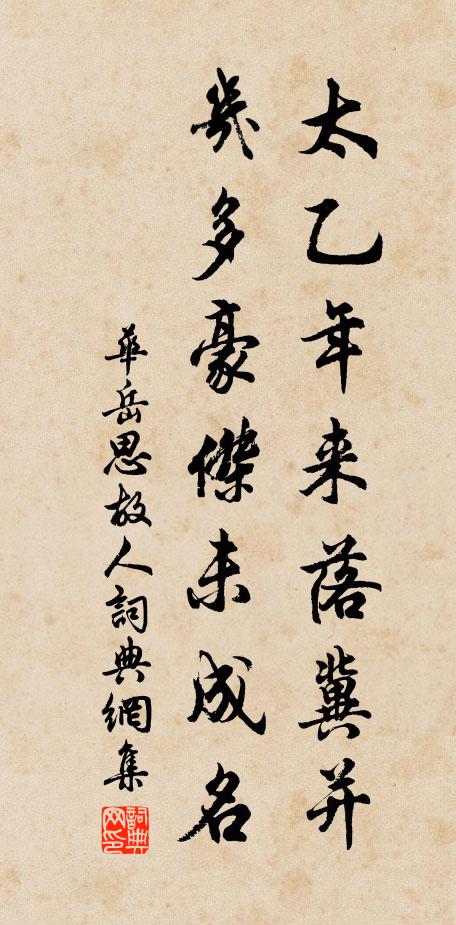 太乙年来落冀并
幾多豪傑未成名
華岳思故人詞典網集
詞典网印